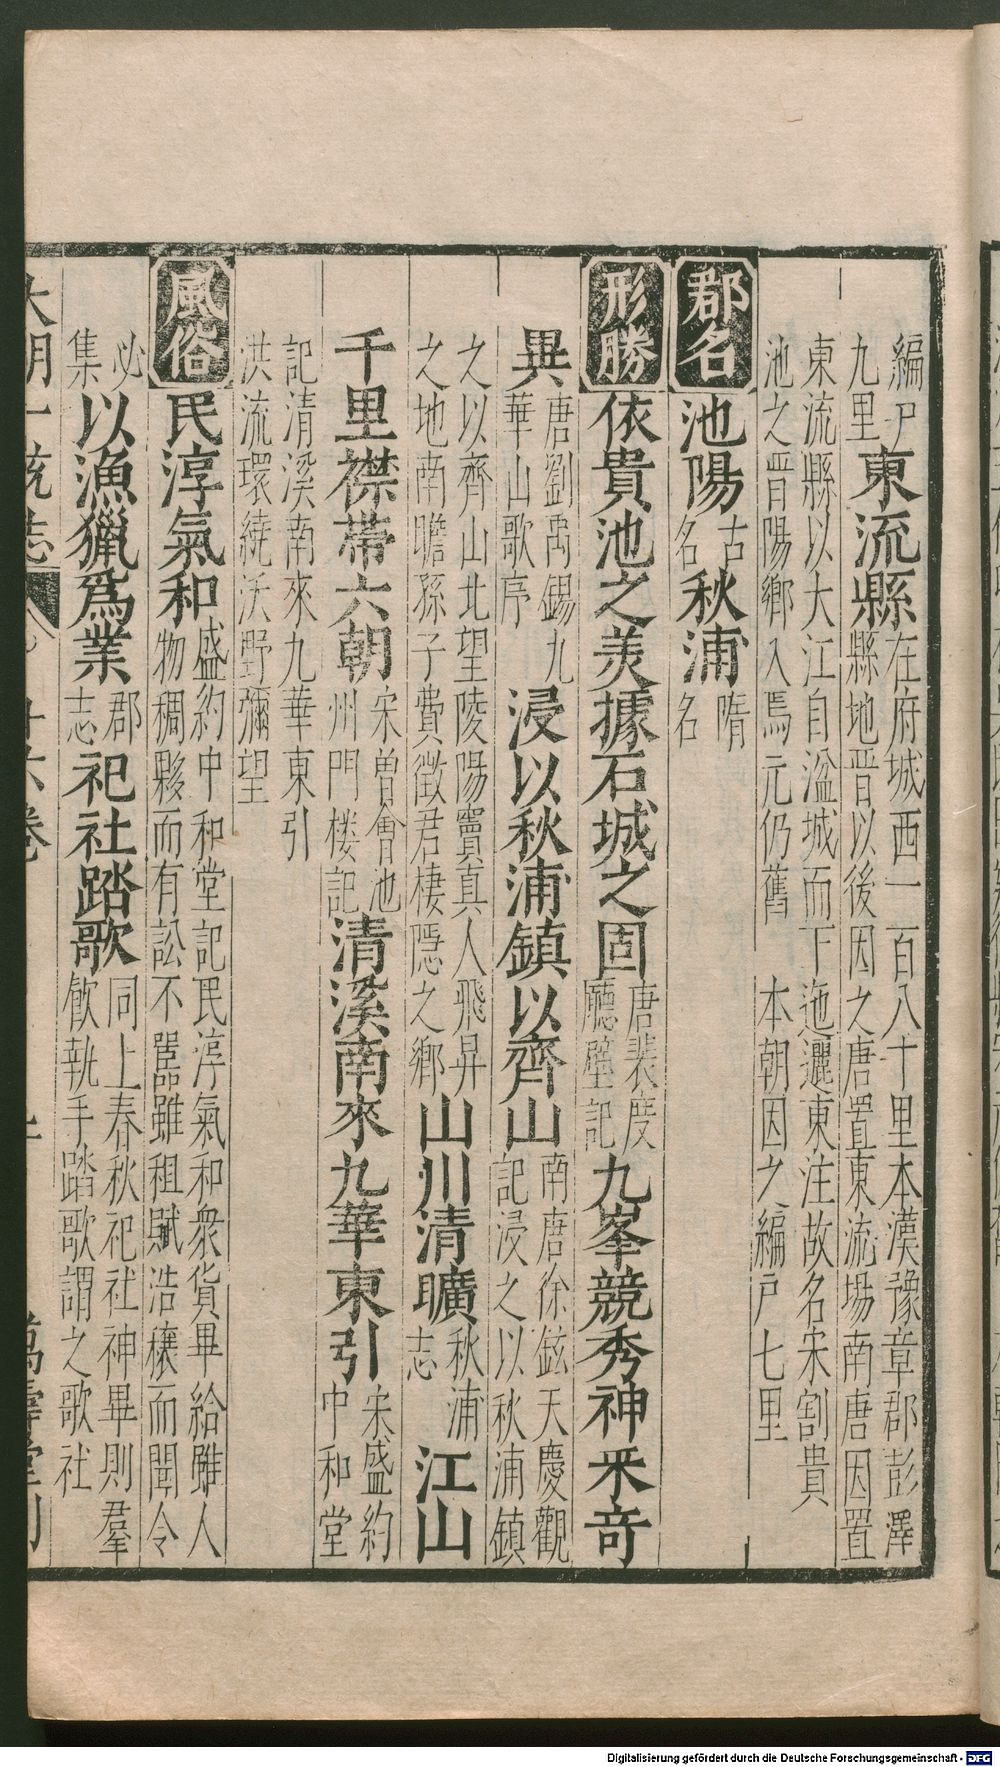 編戶九里東流縣在府城西一百八十里本漢豫章郡彭澤縣地晉以後因之唐置東流場南唐因置
東流縣以大江自湓城而下迤邐東注故名宋割貴池之晉陽鄉入焉元仍舊 本朝因之編戶七里
郡名 池陽古名秋浦隋名
形勝 依貴池之美據石城之固唐裴度廳壁記九峯競秀神釆奇
異唐劉禹錫九華山歌序浸以秋浦鎮以齊山南唐徐鉉天慶觀記浸之以秋浦鎮
之以齊山北望陵陽竇真人飛昇之地南瞻孫子費徵君棲隱之鄉山川清曠秋浦志江山
千里襟帶六朝宋曾會池州門楼記清溪南來九華東引宋盛約中和堂
記清溪南來九華東引洪流環繞沃野彌望
風俗 民淳氣和盛約中和堂記民淳氣和衆貨畢給雖人物稠夥而有訟不嚚雖租賦浩穰而聞令
必集以漁獵爲業郡志祀社踏歌同上春秋祀社神畢則羣飲執手踏歌謂之歌社
大明一統志 十六卷 萬壽堂刊
Digitalisierung gefördert durch die Deutsche Forschungsgemeinschaft - DFG